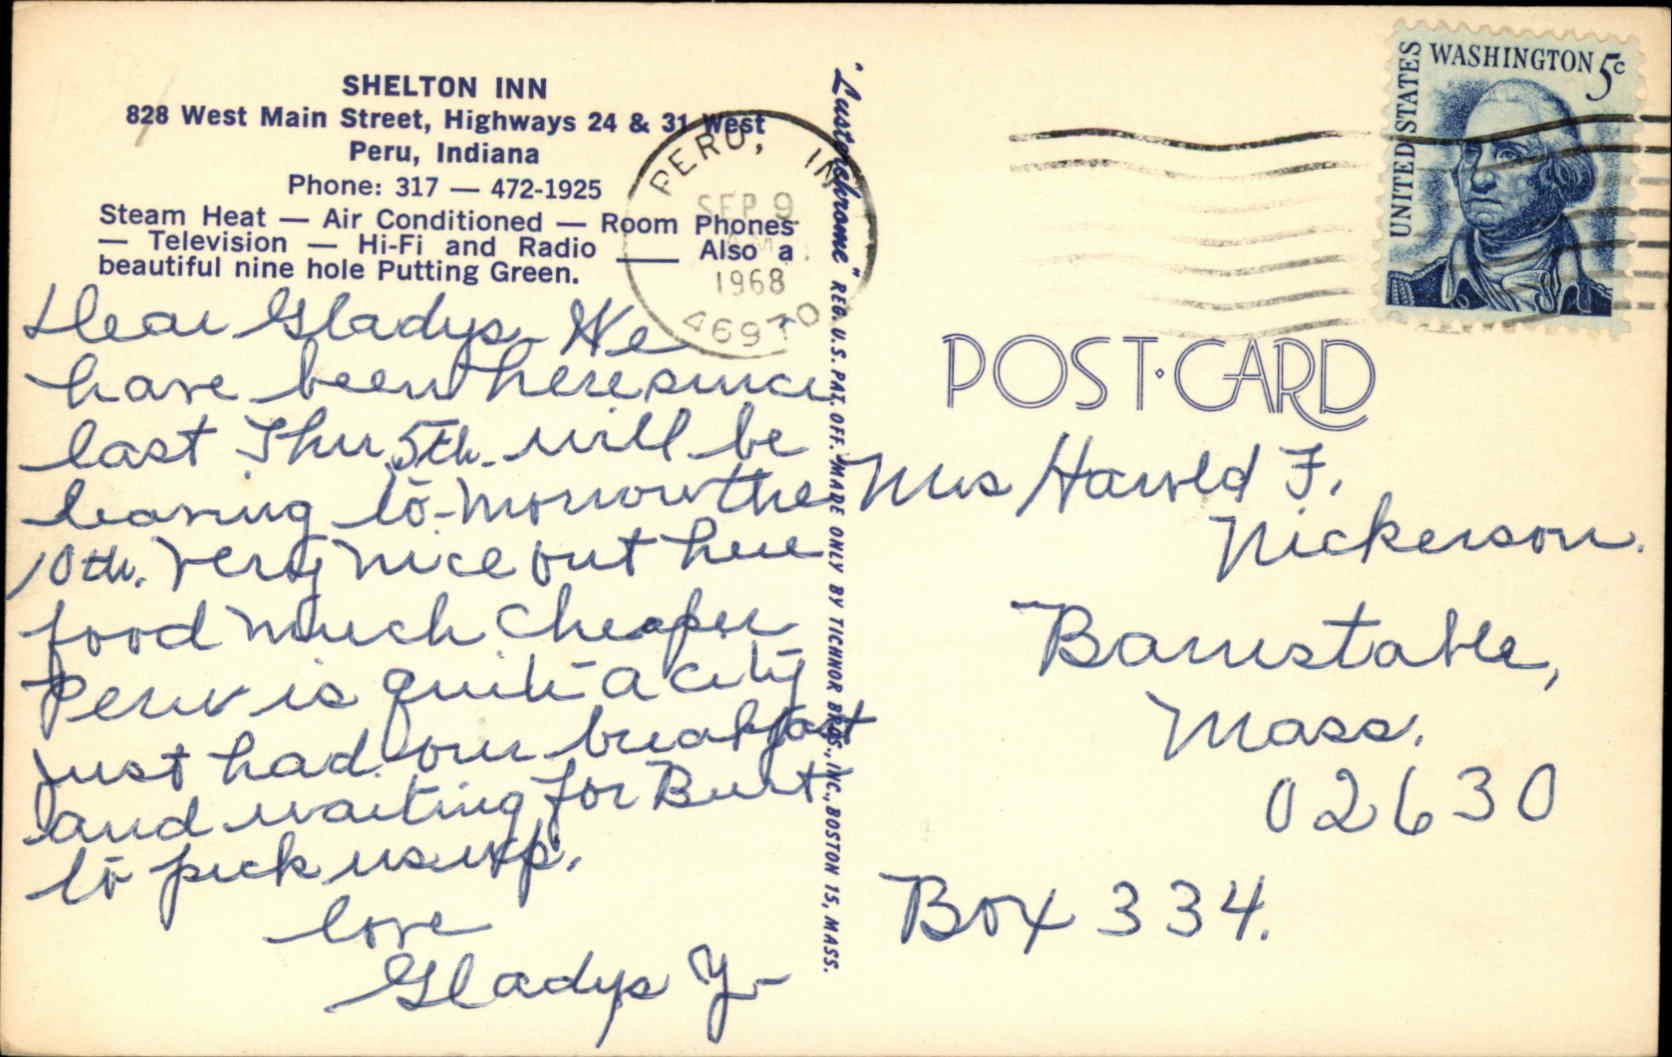 SHELTON INN
828 West Main Street, Highways 24 & 31 West
Peru, Indiana
Phone: 317 — 472-1925
Steam Heat — Air Conditioned — Room Phones
— Television — Hi-Fi and Radio ____ Also a
beautiful nine hole Putting Green.
Dear Gladys - We
have been here since
last Thur 5th. will be
leaving to-morrow the
10th. Very nice out here
food much cheaper
Peru is quite a city
just had our breakfast
and waiting for Burt
to pick us up.
love
Gladys Y-
"Lusterchrome" REG. U.S. PAT. OFF. MADE ONLY BY TICHNOR BROS., INC., BOSTON 15, MASS.
PERU, IN
SEP 9
1968
46970
UNITED STATES
WASHINGTON 5c
POST CARD
Mrs Harold F.
Nickerson.
Barnstable,
Mass.
02630
Box 334.